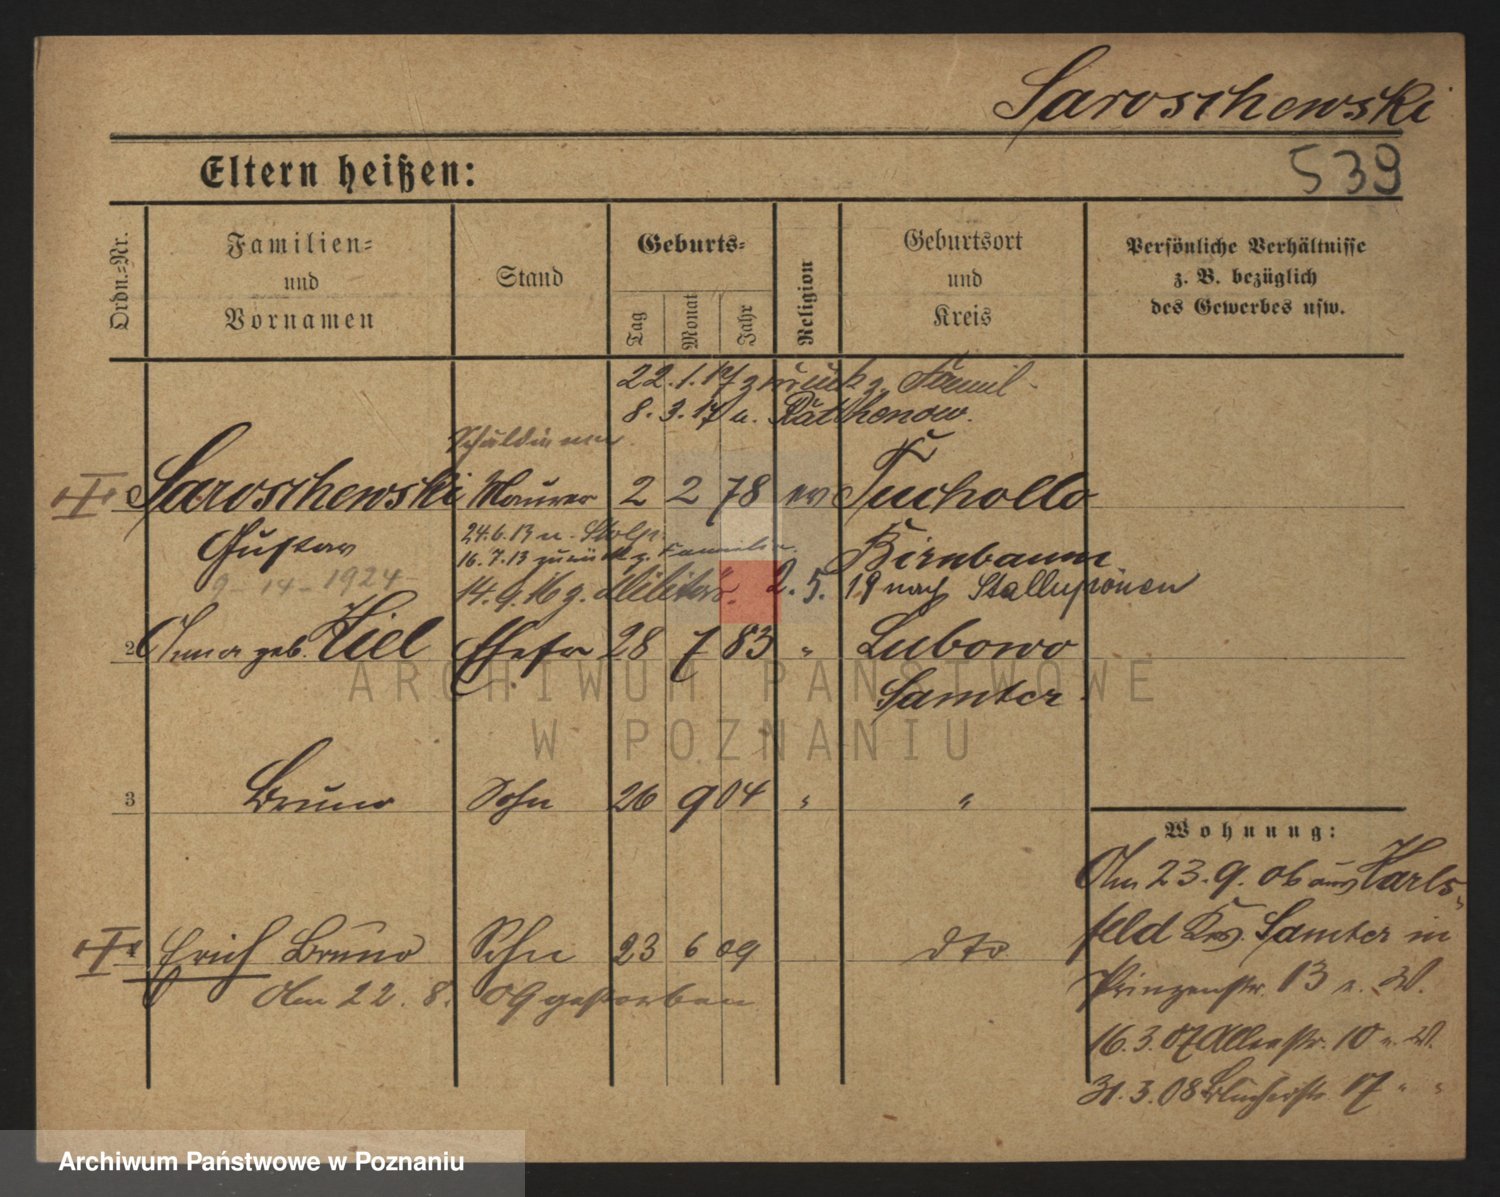 Saroschewski
539
Eltern heißen:
Ordn.-Nr.
Familien- und Vornamen
Stand
Geburts-
Tag
Monat
Jahr
Religion
Geburtsort und Kreis
Persönliche Verhältnisse
z. B. bezüglich
des Gewerbes usw.
22.1.17 zurück z. Famil
8.3.17 n. Rathenow.
Saroschewski Maurer 2 2 78 ev Tucholle
Gustav
24.6.13 n. Stolp
Birnbaum
16.7.13 zurück z. Familie.
14.9.16 z. Militär. 2.5.19 nach Stallupönen
9-14-1924
2 Anna geb. Kiel Ehefr 28 7 83 " Lubowo
Samter
3 Bruno Sohn 26 9 04 " "
Erich Bruno Sohn 23 6 09 dto
Am 22.8.09 gestorben
Wohnung:
Am 23.9.06 aus Karls-
feld Krs. Samter in
Prinzenstr. 13 z. W.
16.3.07 Alleestr. 10 z. W.
31.3.08 Blücherstr. 17 " "
ARCHIWUM PAŃSTWOWE
W POZNANIU
Archiwum Państwowe w Poznaniu